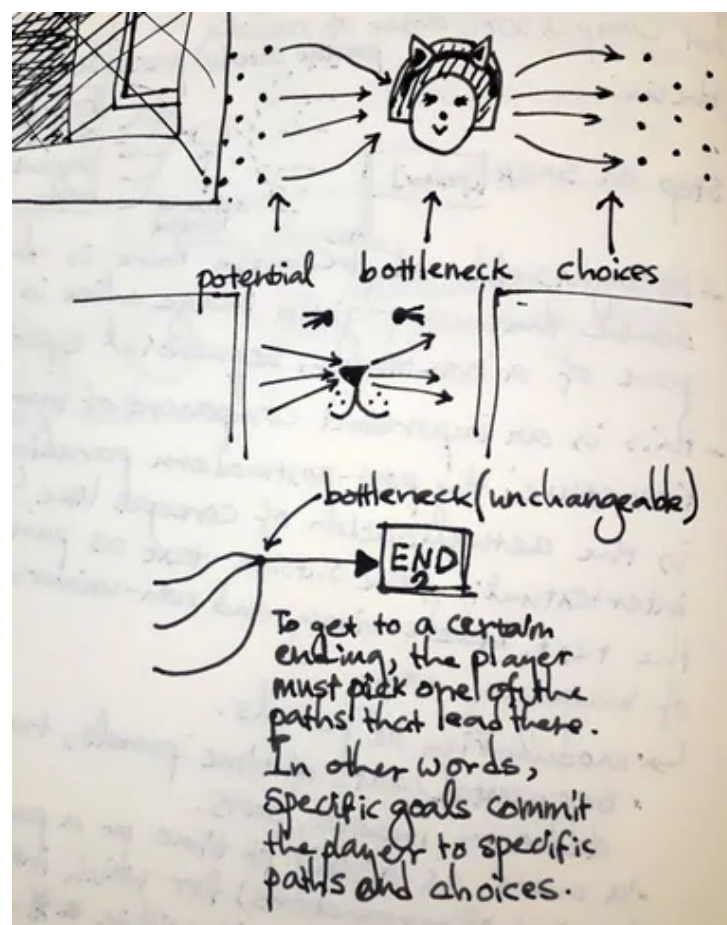 potential bottleneck choices
bottleneck (unchangeable)
END
2
To get to a certain
ending, the player
must pick one of the
paths that lead there.
In other words,
specific goals commit
the player to specific
paths and choices.